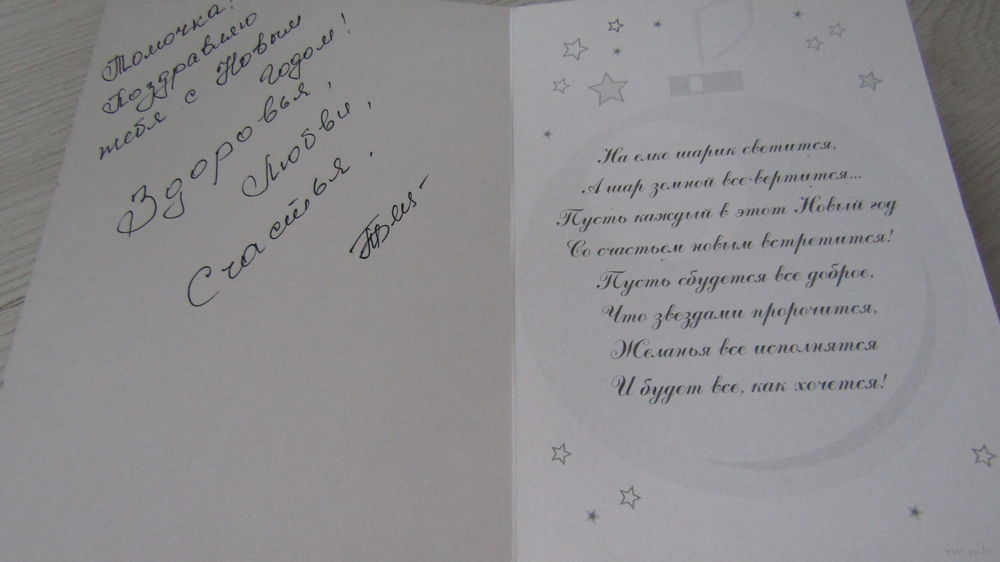 Томочка!
Поздравляю
тебя с Новым
Годом!
Здоровья,
Любви,
Счастья.
На елке шарик светится,
А шар земной все вертится...
Пусть каждый в этот Новый год
Со счастьем новым встретится!
Пусть сбудется все доброе,
Что звездами пророчится,
Желанья все исполнятся
И будет все, как хочется!
www.ay.by